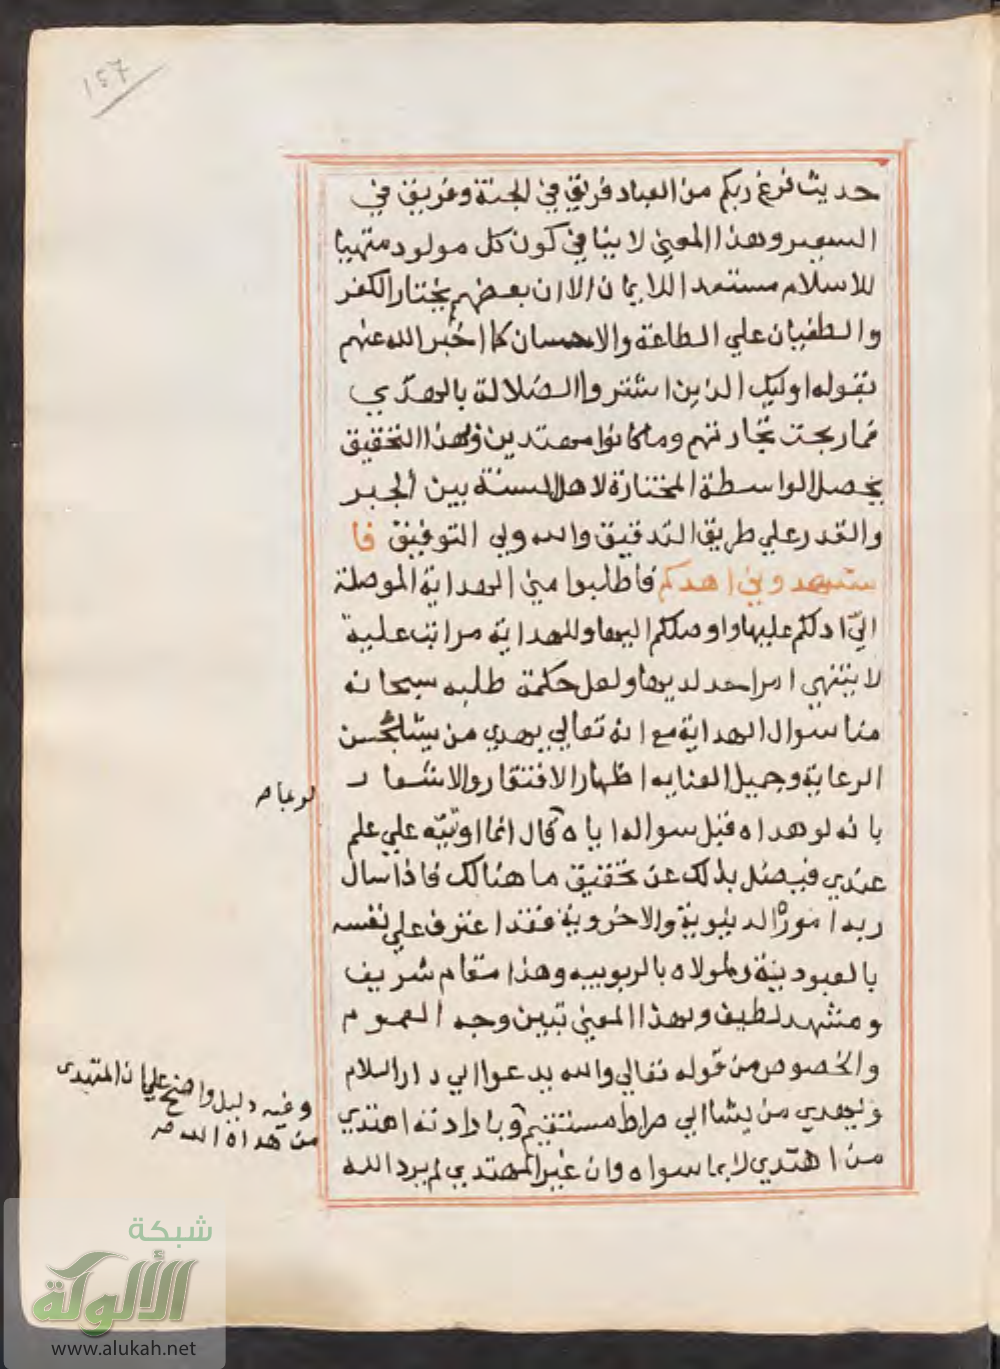 157
حديث فرغ ربكم من العباد فريق في الجنة وفريق في
السعير وهذا المعني لا ينافي كون كل مولود متهيبا
للاسلام مستعدا للايمان الا ان بعضهم يختار الكفر
والطغيان علي الطاعة والاحسان كما اخبر الله عنهم
بقوله اوليك الذين اشتروا الضلالة بالهدي
فما ربحت تجارتهم وما كانوا مهتدين وبهذا التحقيق
يحصل الواسطة المختارة لاهل السنة بين الجبر
والقدر علي طريق التدقيق والله ولي التوفيق فا
ستهدوني اهدكم فاطلبوا مني الهداية الموصلة
الي ادلكم عليها واوصلكم اليها وللهداية مراتب علية
لا ينتهي امر احد لديها ولعل حكمة طلبه سبحانه
منا سوال الهداية مع انه تعالي يهدي من يشا بحسن
الرعاية وجميل العنايه اظهار الافتقار والاشعار
بانه لو هداه قبل سواله اياه قال انما اوتيته علي علم
لربما صح
عندي فيضل بذلك عن تحقيق ما هنالك فاذا سال
ربه امور الدنيوية والاخروية فقد اعترف علي نفسه
بالعبودية ولمولاه بالربوبيه وهذا مقام شريف
ومشهد لطيف وبهذا المعني تبين وجه العموم
والخصوص من قوله تعالي والله يدعوا الي دار السلام
ويهدي من يشا الي صراط مستقيم وبارادته اهتدي
من اهتدي لا بما سواه وان غير المهتدي لم يرد الله
وفيه دليل واضح علي ان المهتدي
من هداه الله صح
شبكة
الألوكة
www.alukah.net